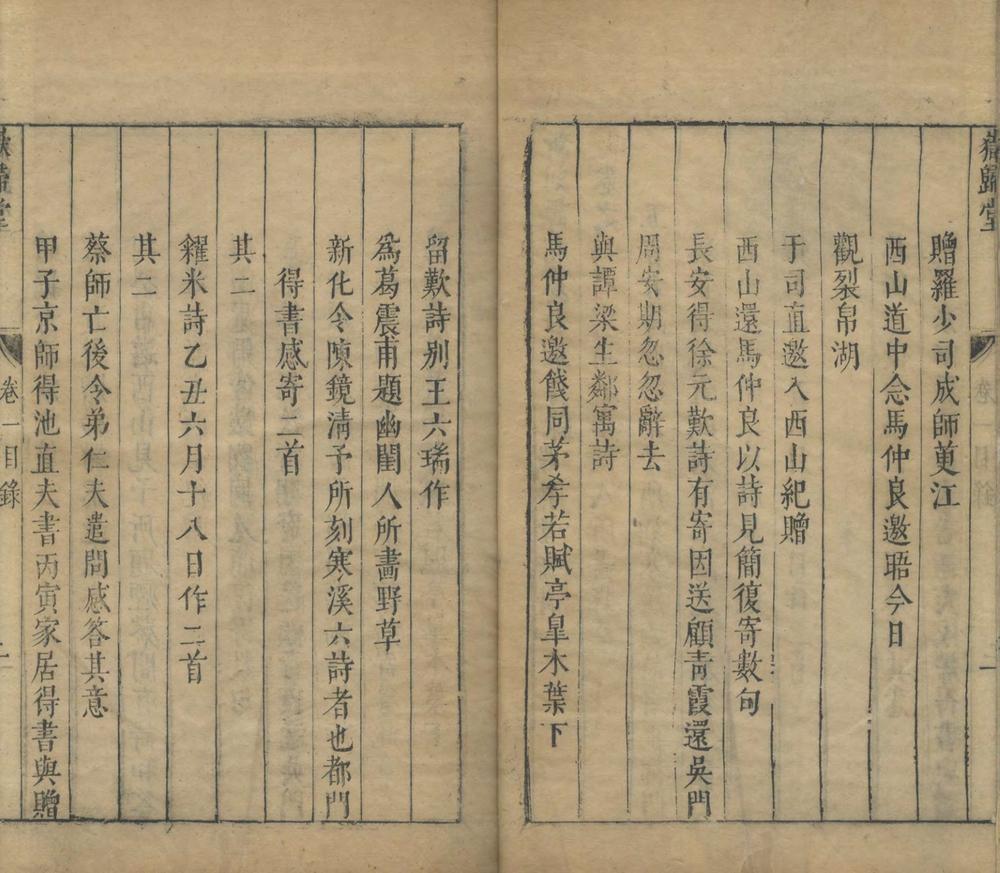 嶽歸堂
卷一目錄
二
贈羅少司成師萸江
西山道中念馬仲良邀晤今日
觀裂帛湖
于司直邀入西山紀贈
西山還馬仲良以詩見簡復寄數句
長安得徐元歎詩有寄因送顧青霞還吳門
周安期忽忽辭去
與譚梁生鄰寓詩
馬仲良邀餞同茅孝若賦亭皐木葉下
留歎詩別王六瑞作
為葛震甫題幽閨人所畵野草
新化令陳鏡清予所刻寒溪六詩者也都門
得書感寄二首
其二
糴米詩乙丑六月十八日作二首
其二
蔡師亡後令弟仁夫遣問感答其意
甲子京師得池直夫書丙寅家居得書與贈
嶽歸堂
卷一目錄